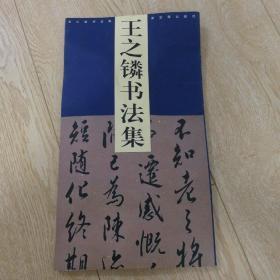 王之𬭸书法集
不知老之将
遷感慨
已為陳迹
短随化終期